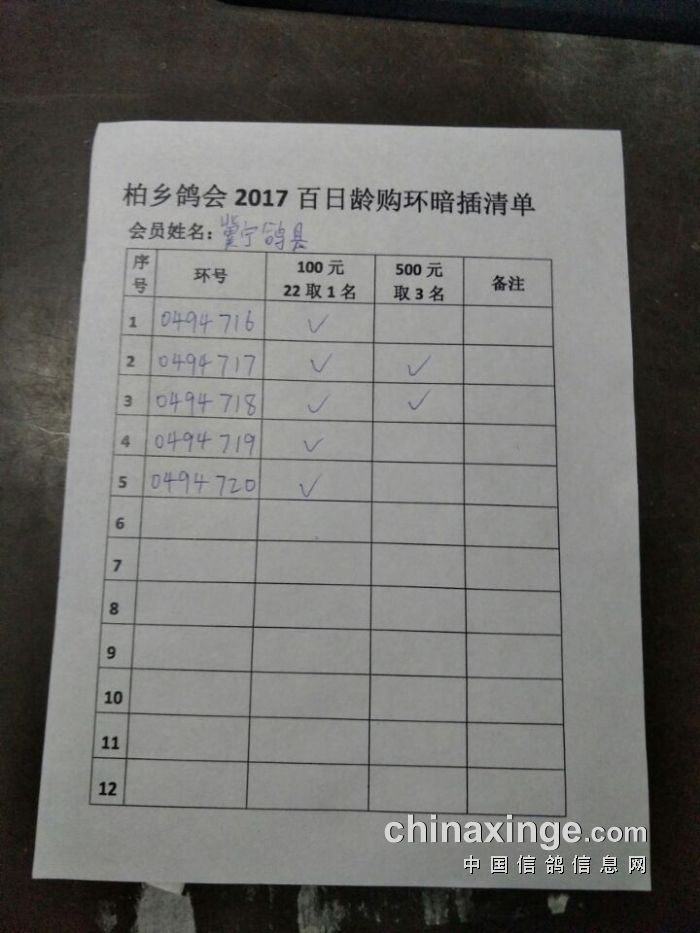 柏乡鸽会 2017 百日龄购环暗插清单
会员姓名：冀宁鸽县
序号 环号 100 元 22 取 1 名 500 元 取 3 名 备注
1 0494716 ✓
2 0494717 ✓ ✓
3 0494718 ✓ ✓
4 0494719 ✓
5 0494720 ✓
6
7
8
9
10
11
12
chinaxinge.com
中国信鸽信息网